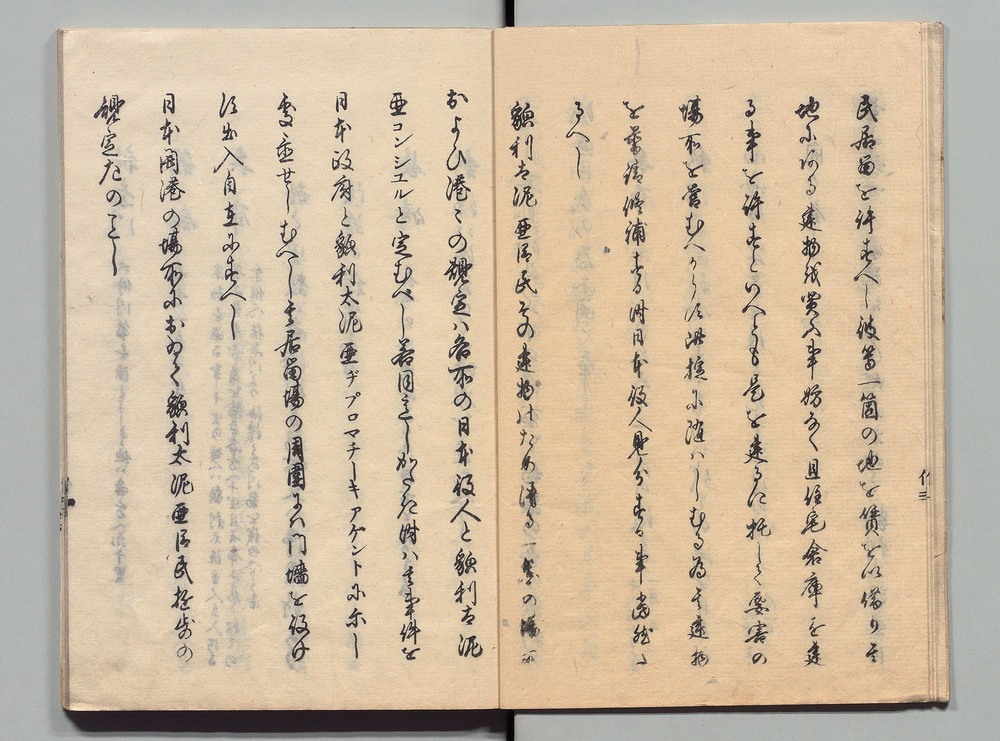 民居留を許すへし彼等一箇の地を価を以借り其
地にある建物を買ふ事妨なく且住宅倉庫を建
る事を許すといへとも是を建るに托して要害の
場所を営むへからす此掟に随ハしむる為其建物
を普請修補する時日本役人見分する事当然た
るへし
貌利太泥亜臣民その建物のため得る一箇の場所
および港々の規定ハ各所の日本役人と貌利太泥
亜コンシュルと定むべし若同意しかたき時ハ其事件を
日本政府と貌利太泥亜ヂプロマチーキアケントに示し
処置せしむへし其居留場の周囲にハ門墻を設け
す出入自在にすへし
日本開港の場所において貌利太泥亜臣民遊歩の
規定左のことし